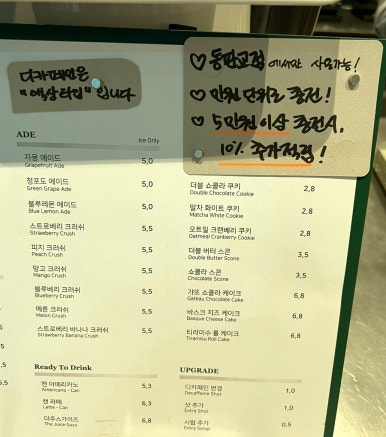 디카페인은
"액상타입" 입니다
♡ 동판교점 에서만 사용가능!
♡ 만원 단위로 충전!
♡ 5만원 이상 충전시,
10% 추가적립!
ADE
Ice Only
자몽 에이드 5,0
Grapefruit Ade
청포도 에이드 5,0
Green Grape Ade
블루레몬 에이드 5,0
Blue Lemon Ade
스트로베리 크러쉬 5,5
Strawberry Crush
피치 크러쉬 5,5
Peach Crush
망고 크러쉬 5,5
Mango Crush
블루베리 크러쉬 5,5
Blueberry Crush
메론 크러쉬 5,5
Melon Crush
스트로베리 바나나 크러쉬 5,5
Strawberry Banana Crush
더블 쵸콜라 쿠키 2,8
Double Chocolate Cookie
말차 화이트 쿠키 2,8
Matcha White Cookie
오트밀 크랜베리 쿠키 2,8
Oatmeal Cranberry Cookie
더블 버터 스콘 3,5
Double Butter Scone
쇼콜라 스콘 3,5
Chocolate Scone
갸또 쇼콜라 케이크 6,8
Gateau Chocolate Cake
바스크 치즈 케이크 6,8
Basque Cheese Cake
티라미수 롤 케이크 6,8
Tiramisu Roll Cake
Ready To Drink
캔 아메리카노 5,3
Americano - Can
캔 라떼 6,3
Latte - Can
더주스가이즈 6,8
The Juice Guys
UPGRADE
디카페인 변경 1,0
Decaffeine Shot
샷 추가 1,0
Extra Shot
시럽 추가 0,5
Extra Syrup